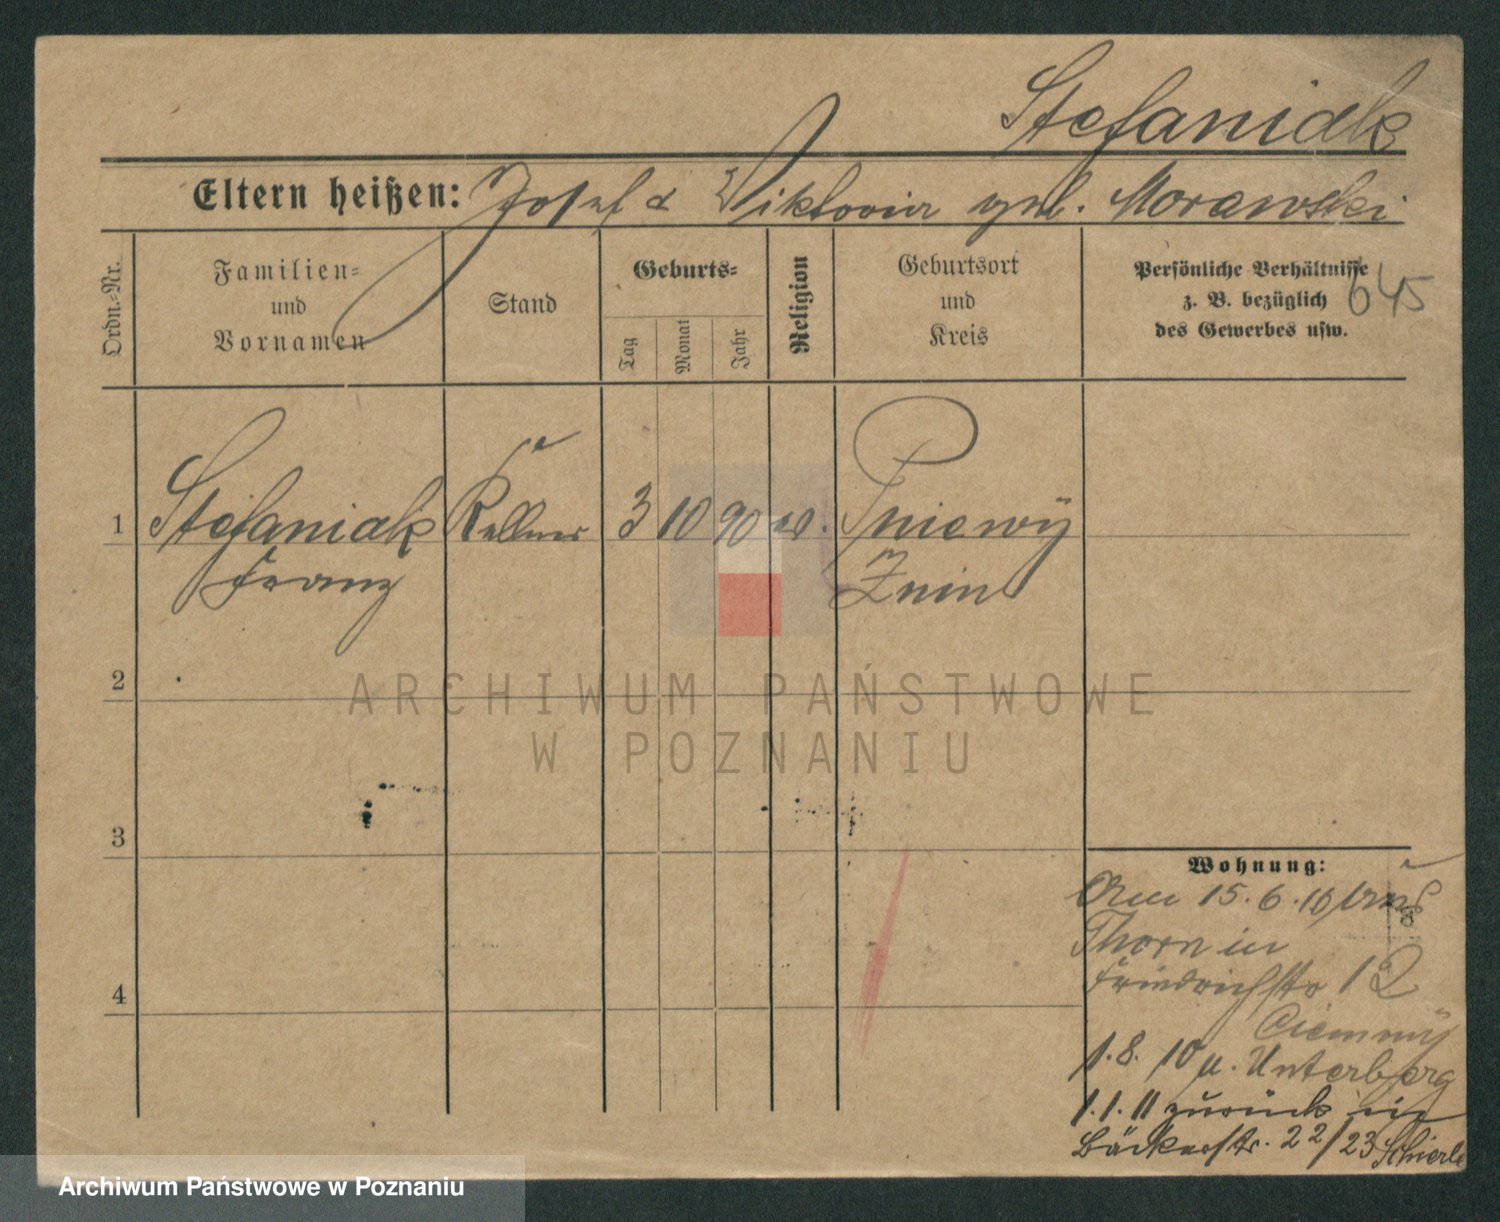 Stefaniak
Eltern heißen: Josef & Viktoria geb. Morawski
Ordn.-Nr.
Familien-
und
Vornamen
Stand
Geburts-
Tag
Monat
Jahr
Religion
Geburtsort
und
Kreis
Persönliche Verhältnisse
z. B. bezüglich
des Gewerbes usw.
645
1
Stefaniak
Franz
Kellner
3
10
90
Pniewy
Znin
2
3
4
Wohnung:
15.6.10
Thorn in
Friedrichstr 12
Ciemny
1.8. 10 u. Unterberg
1.1.11 zurück in
Bäckerstr. 22/23
ARCHIWUM PAŃSTWOWE
W POZNANIU
Archiwum Państwowe w Poznaniu